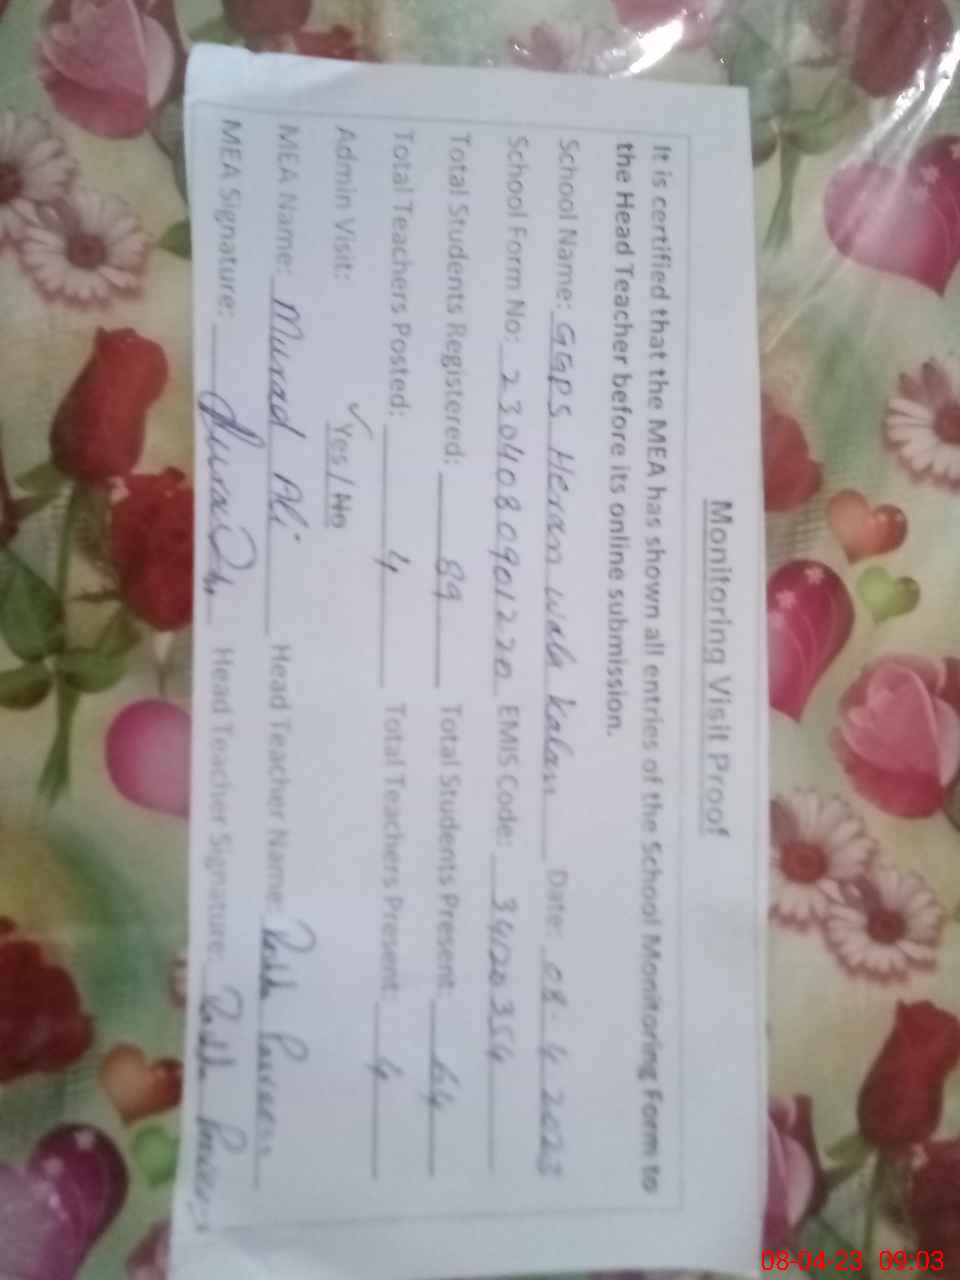 Monitoring Visit Proof
It is certified that the MEA has shown all entries of the School Monitoring Form to
the Head Teacher before its online submission.
School Name: GGPS Heran wala kalan Date: 08-4 2023
School Form No: 2304080901220 EMIS Code: 34120354
Total Students Registered: 89 Total Students Present: 64
Total Teachers Posted: 4 Total Teachers Present: 4
Admin Visit: ✓Yes / No
MEA Name: Murad Ali Head Teacher Name: Parveen
MEA Signature: Head Teacher Signature:
08-04-23 09:03